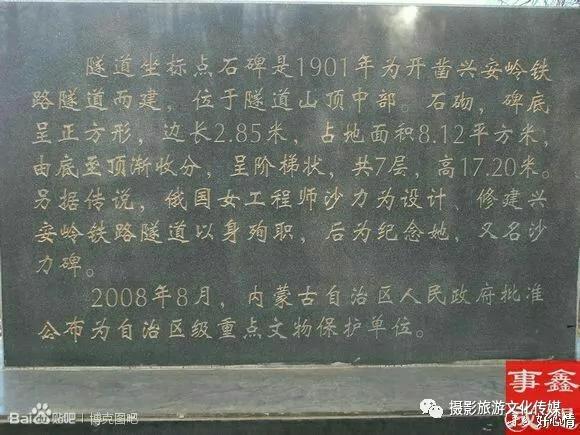 隧道坐标点石碑是1901年为开凿兴安岭铁
路隧道而建，位于隧道山顶中部。石砌，碑底
呈正方形，边长2.85米，占地面积8.12平方米，
由底至顶渐收分，呈阶梯状，共7层，高17.20米。
另据传说，俄国女工程师沙力为设计、修建兴
安岭铁路隧道以身殉职，后为纪念她，又名沙
力碑。
2008年8月，内蒙古自治区人民政府批准
公布为自治区级重点文物保护单位。
Bai百度贴吧 | 博克图吧
摄影旅游文化传媒
事鑫
好心情